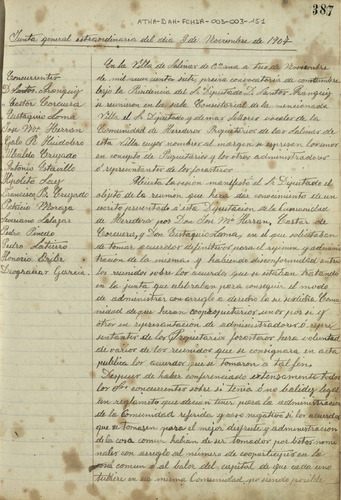 ATHA-DAH-FCHSA-003-003-151
387
Junta general extraordinaria del dia 3 de Noviembre de 1907
Concurrentes
D. Santos
Castor Corcuera
Eustaquio Loma
José Mª Herran
Galo R. Huidobro
Ubaldo Crejado
Antonio
Hipolito
Francisco
Patricio
Luciano Salazar
Pedro Pinedo
Pedro
Honorio
Deogracias Garcia.
En la Villa de Salinas de a tres de Noviembre
de mil novecientos siete previa convocatoria de costumbre
bajo la Presidencia del Sr Diputado D. Santos
se reunieron en la sala Consistorial de la mencionada
Villa, el Sr Diputado y demas Señores vocales de la
Comunidad de Herederos Propietarios de las Salinas de
esta villa cuyos nombres al margen se expresan los unos
en concepto de Propietarios y los otros administradores
ó representantes de los forasteros
Abierta la sesion manifestó el Sr Diputado el
objeto de la reunion que era dar conocimiento de un
escrito presentado á esta Diputacion de la Comunidad
de Herederos por Don José Mª Herran, Castor de
Corcuera, y Don Eustaquio Loma, en el que solicitaban
de tomar acuerdos definitivos para el regimen y adminis-
tracion de la misma y habiendo disconformidad entre
los reunidos sobre los acuerdos que se trataban
en la junta que celebraban para conseguir el modo
de administrar con arreglo a derecho la Comu-
nidad de que eran copropietarios unos por si y
otros en representacion de administradores ó repre-
sentantes de los Propietarios forasteros era voluntad
de varios de los reunidos que se consignara en acta
publica los acuerdos que se tomaran a tal fin.
Despues de haber conferenciado extensamente todos
los Sres concurrentes sobre si tenia ó no validez legal
un reglamento que decian tener para la administracion
de la Comunidad referida y caso negativo si los acuerdos
que se tomasen para el mejor disfrute y administracion
de la cosa comun habian de ser tomados por votos nomi-
nales con arreglo al número de coparticipes en la
cosa comun ó al balor del capital de que cada uno
tubiere en la misma Comunidad, no siendo posible